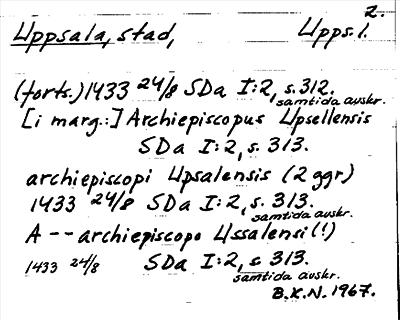 2.
Uppsala, stad, Upps. l.
(forts.) 1433 24/8 SDa I:2, s. 312.
samtida avskr.
[i marg.:] Archiepiscopus Upsellensis
SDa I:2, s. 313.
archiepiscopi Upsalensis (2 ggr)
1433 24/8 SDa I:2, s. 313.
samtida avskr.
A -- archiepiscopo Ussalensi (!)
1433 24/8 SDa I:2, s 313.
samtida avskr.
B.K.N. 1967.